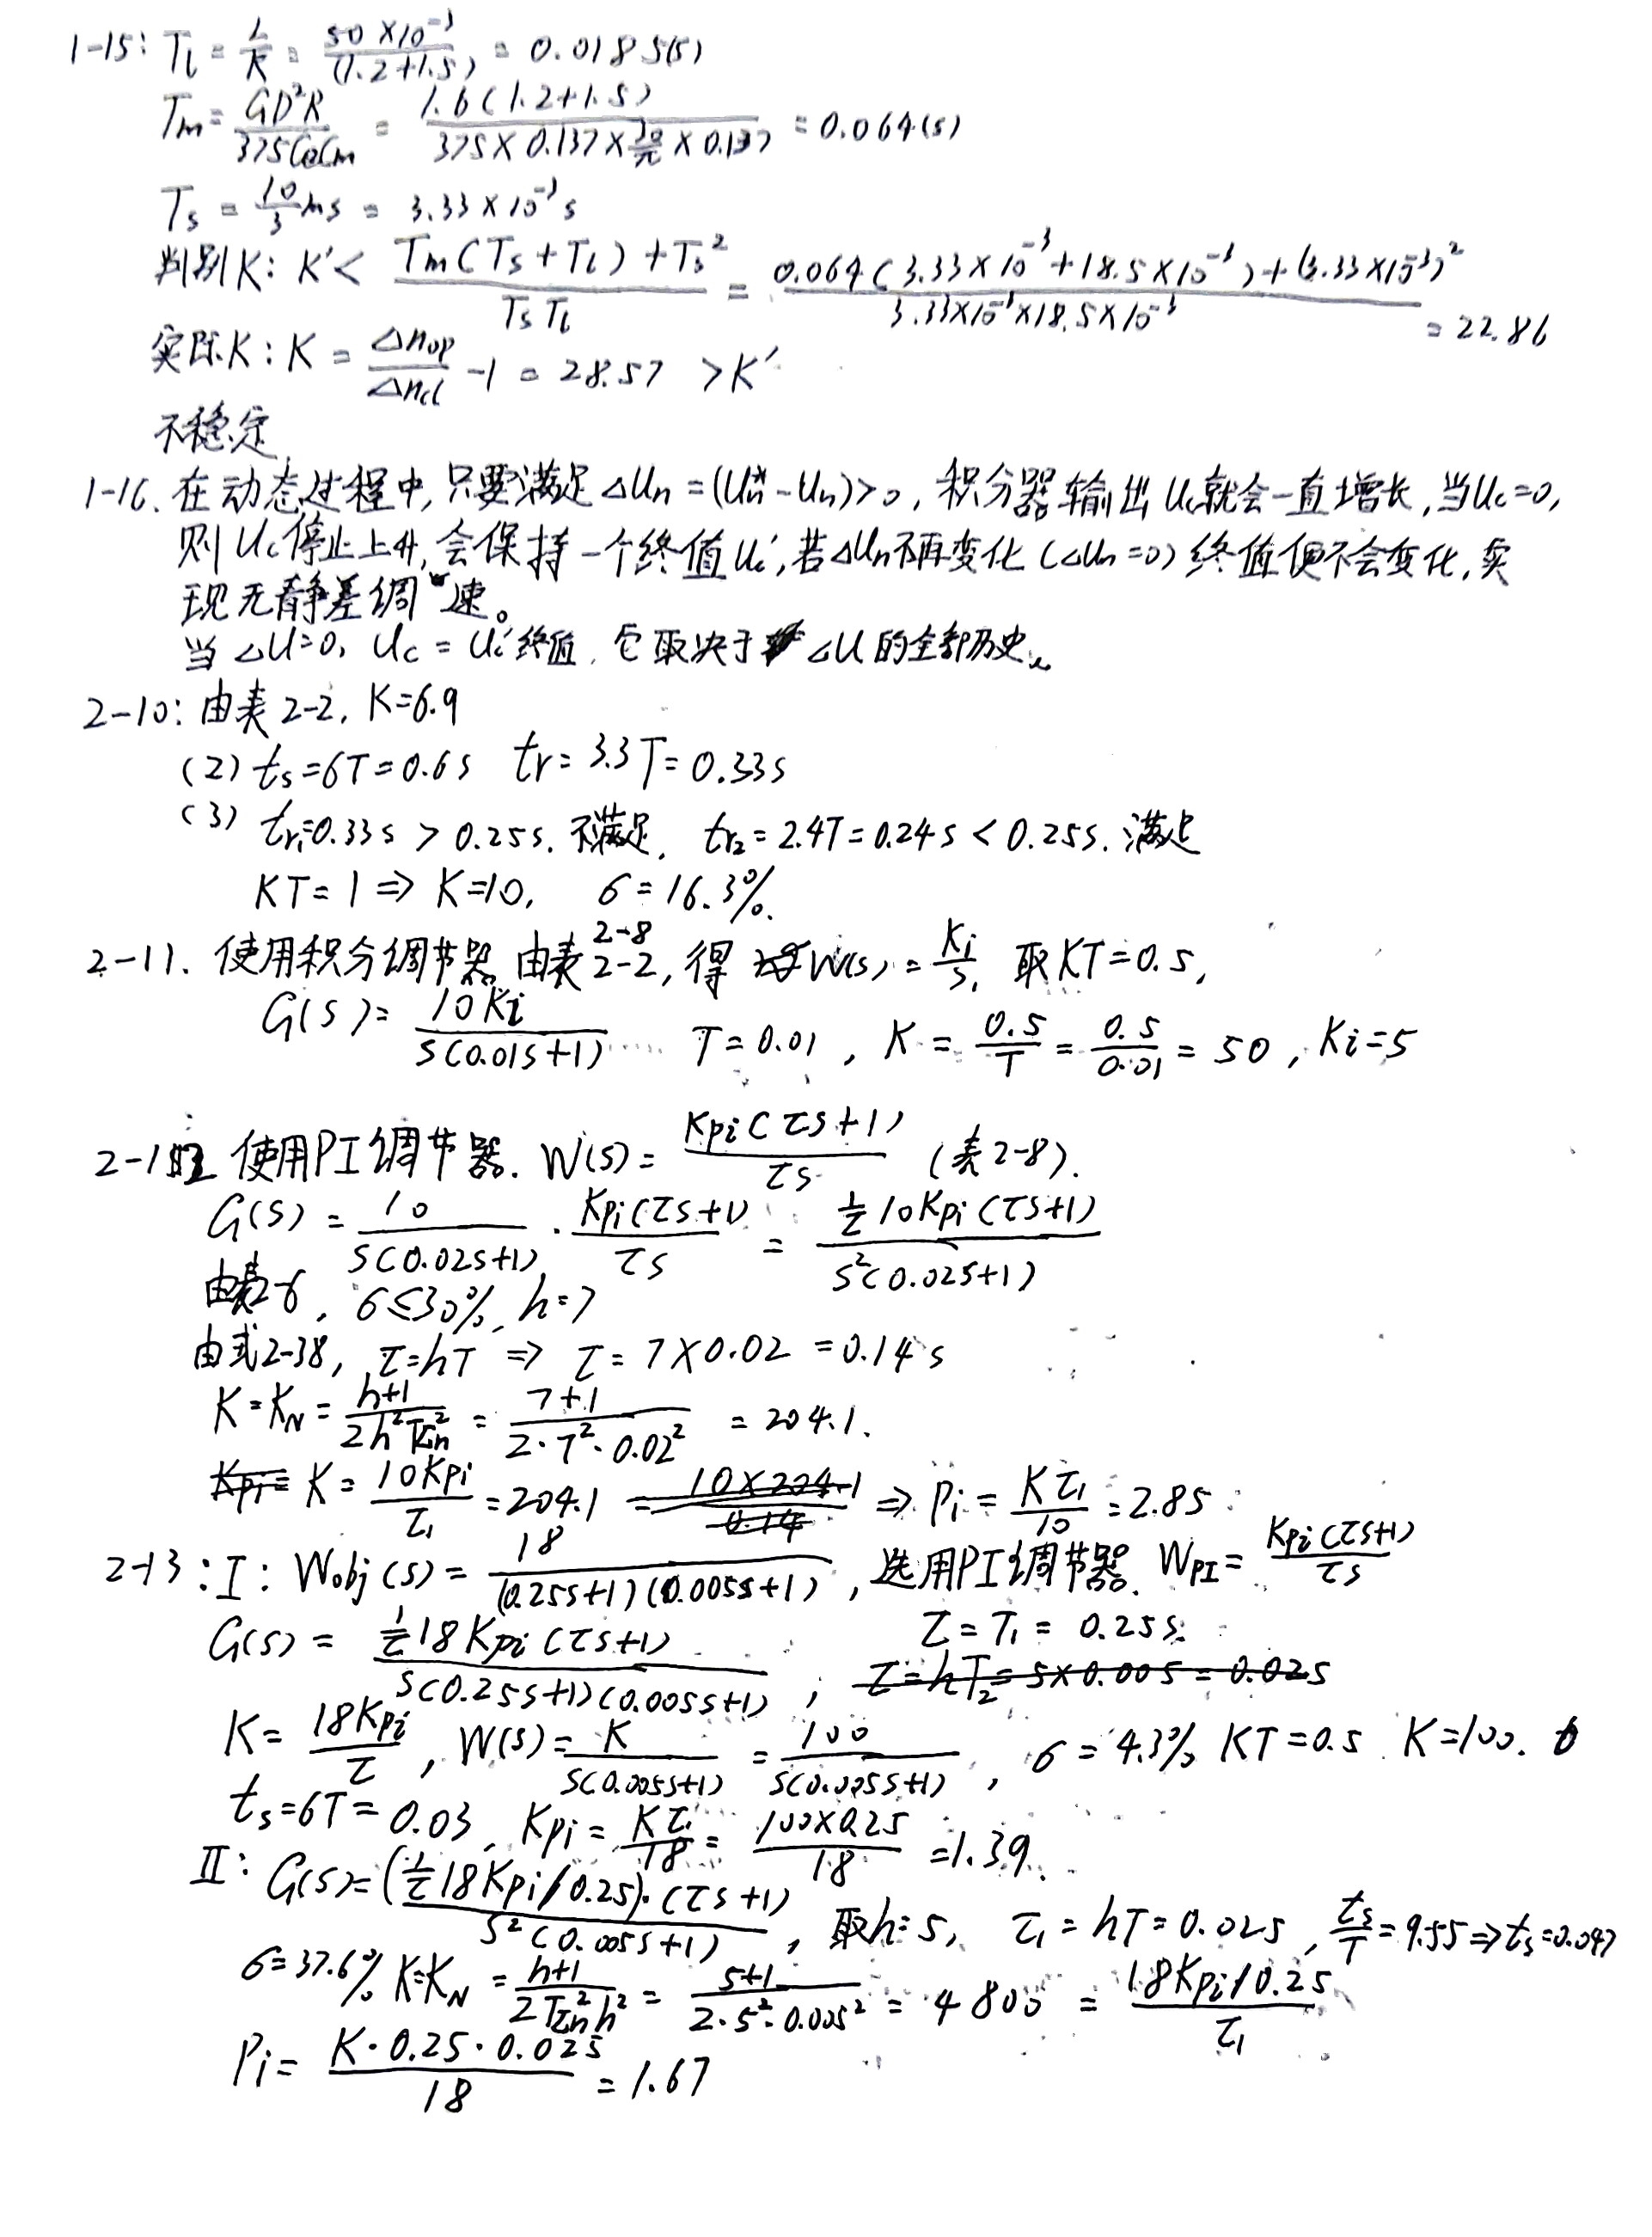 1-15: T_l = L/R = 50×10^-3/(1.2+1.5) = 0.0185(s)
T_m = GD²R/375CeCm = 1.6(1.2+1.5)/(375×0.137×30/π×0.137) = 0.064(s)
T_s = 10/3 ms = 3.33×10^-3 s
判别K: K'< (T_m(T_s+T_l)+T_s²)/(T_s T_l) = (0.064(3.33×10^-3+18.5×10^-3)+(3.33×10^-3)²)/(3.33×10^-3×18.5×10^-3) = 22.86
实际K: K = Δn_op/Δn_cl -1 = 28.57 >K'
不稳定
1-16. 在动态过程中,只要满足ΔUn=(Un*-Un)>0, 积分器输出Uc就会一直增长,当Uc=0,
则Uc停止上升,会保持一个终值Uc',若ΔUn不再变化(ΔUn=0)终值便不会变化,实
现无静差调速。
当ΔU=0, Uc=Uc'终值, 它取决于ΔU的全部历史。
2-10: 由表2-2, K=6.9
(2) ts=6T=0.6s tr=3.3T=0.33s
(3) tr1=0.33s > 0.25s. 不满足, tr2=2.4T=0.24s < 0.25s. 满足
KT=1 ⇒ K=10, σ=16.3%.
2-11. 使用积分调节器 由表2-8 2-2, 得 W(s)=Ki/s, 取KT=0.5,
G(s)=10Ki/(s(0.01s+1)) T=0.01, K=0.5/T=0.5/0.01=50, Ki=5
2-12 使用PI调节器. W(s)=Kpi(τs+1)/τs (表2-8).
G(s)=10/(s(0.02s+1))·Kpi(τs+1)/τs=(1/τ)10Kpi(τs+1)/(s²(0.02s+1))
由表2-6, σ≤30%, h=7
由式2-38, τ=hT ⇒ τ=7×0.02=0.14s
K=K_N=(h+1)/(2h²T_Σn²)=(7+1)/(2·7²·0.02²)=204.1.
Kpi= K=10Kpi/τ1=204.1 =10×204.1/0.14 ⇒ Pi=Kτ1/10=2.85
2-13: I: Wobj(s)=18/((0.25s+1)(0.005s+1)), 选用PI调节器. W_PI=Kpi(τs+1)/τs
G(s)=(1/τ)18Kpi(τs+1)/(s(0.25s+1)(0.005s+1)), τ=T1=0.25s.
τ=hT2=5×0.005=0.025
K=18Kpi/τ, W(s)=K/(s(0.005s+1))=100/(s(0.005s+1)), σ=4.3% KT=0.5. K=100.
ts=6T=0.03, Kpi=Kτ1/18=100×0.25/18=1.39.
II: G(s)=((1/τ)18Kpi/0.25)·(τs+1)/(s²(0.005s+1)), 取h=5, τ1=hT=0.025, ts/T=9.55⇒ts=0.047
σ=37.6% K=K_N=(h+1)/(2T_Σn²h²)=(5+1)/(2·5²·0.005²)=4800=(18Kpi/0.25)/τ1
Pi=K·0.25·0.025/18=1.67